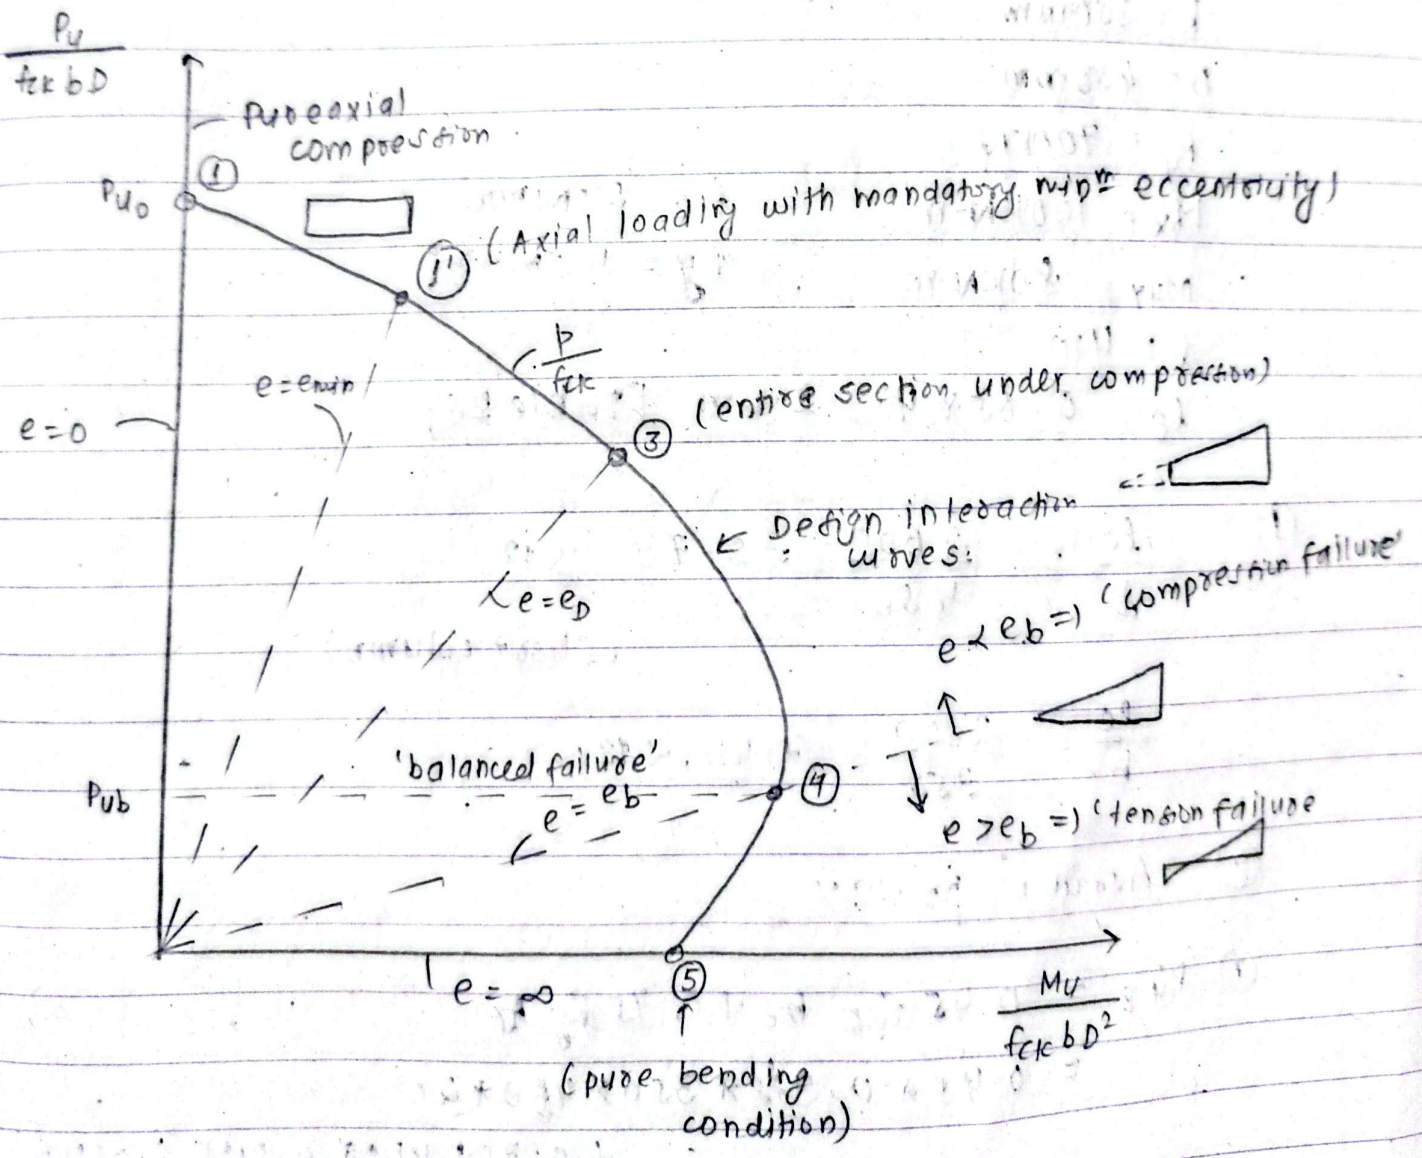 Pu
fck bD
Pure axial
compression
①
Puo
①' (Axial loading with mandatory minm eccentricity)
p
fck
e=emin
e=0
③ (entire section under compression)
Design interaction
curves:
e=eD
e < eb => 'compression failure'
'balanced failure'
e = eb
Pub
④
e > eb => 'tension failure
e = ∞
⑤
Mu
fck bD²
(pure bending
condition)